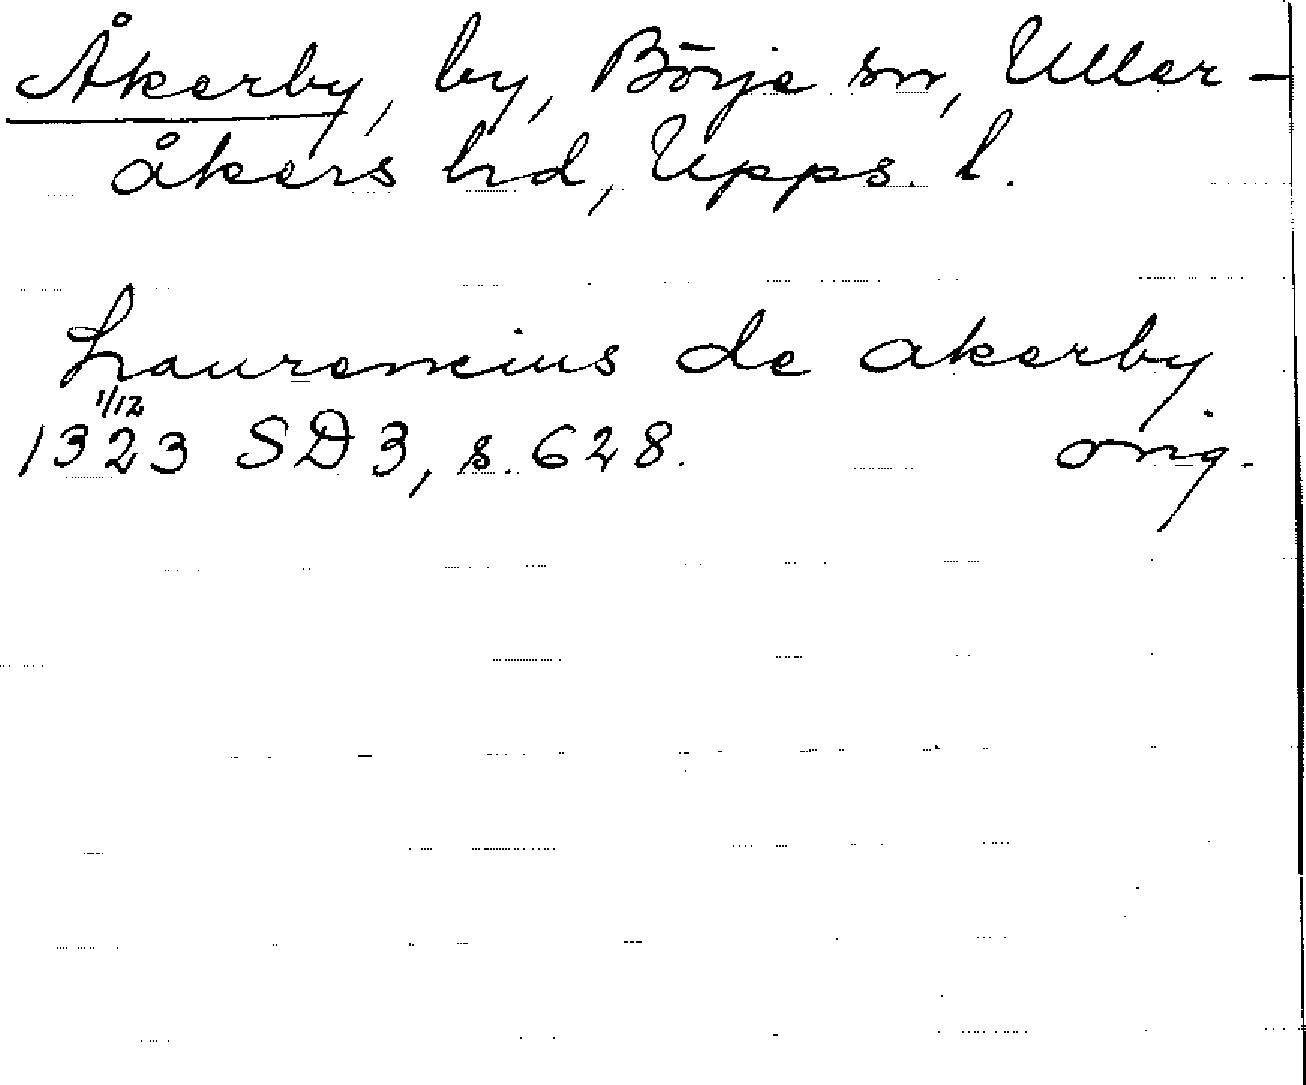 Åkerby, by, Börje sn, Uller-
åkers hd, Upps. l.
Laurencius de akerby
1/12
1323 SD 3, s. 628. orig.